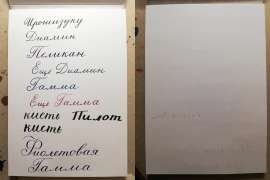 Ирошизуку
Диамин
Пеликан
Еще Диамин
Гамма
Еще Гамма
кисть Пилот
кисть
Фиолетовая
Гамма